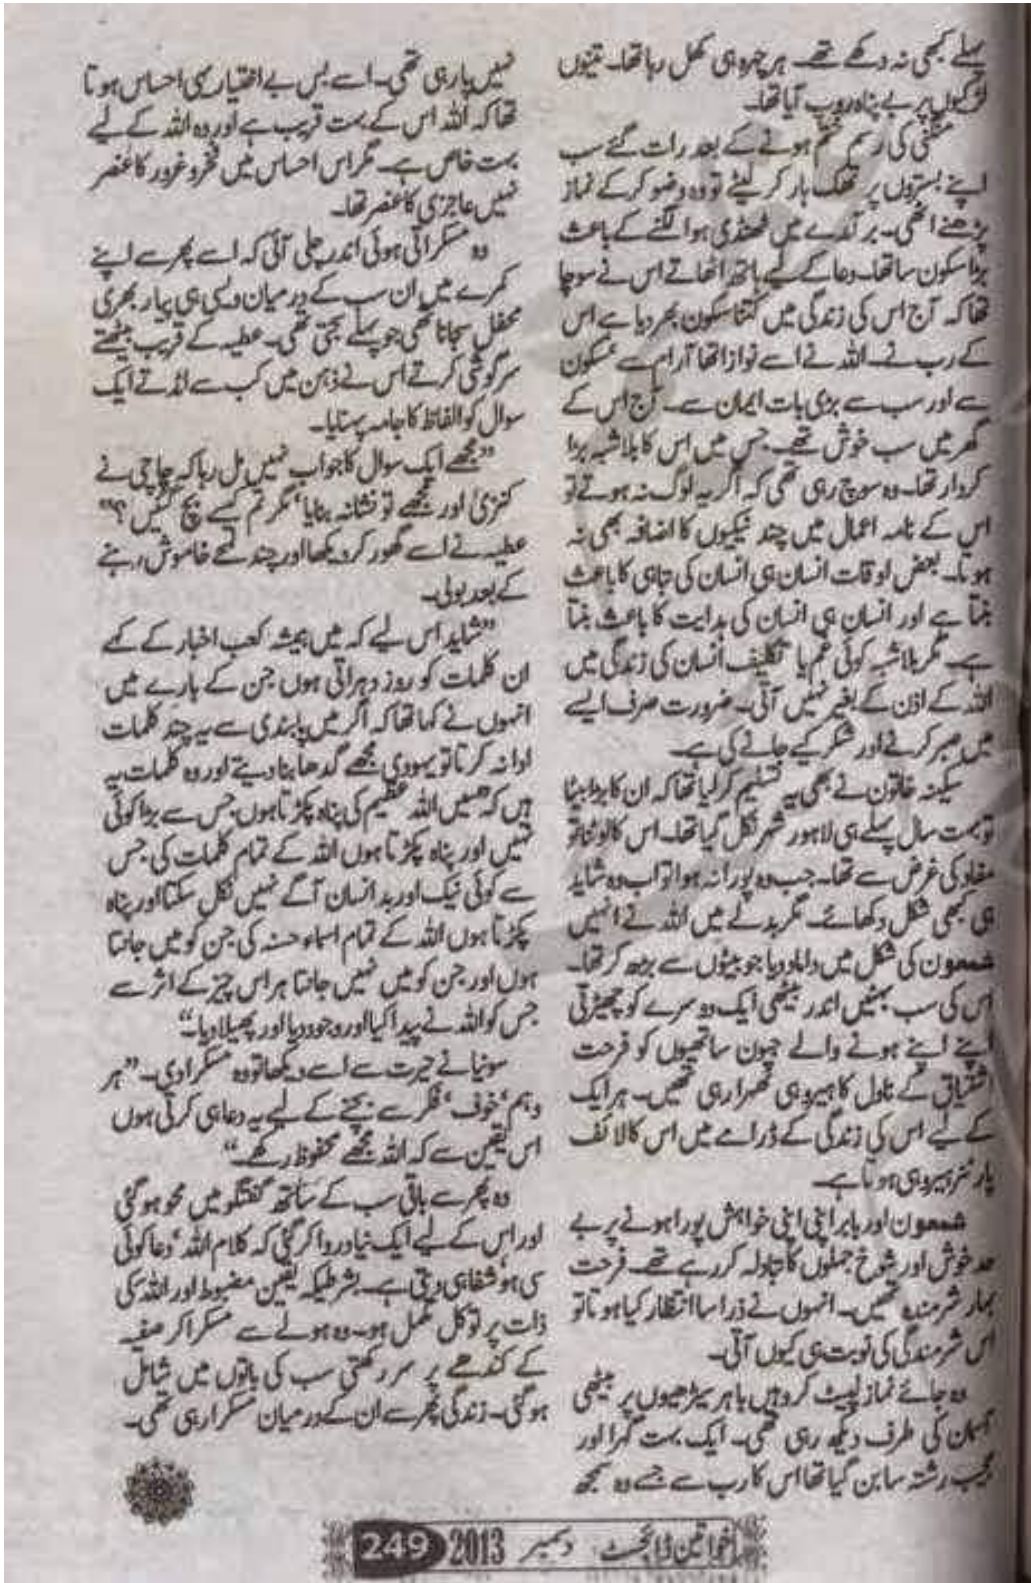 پہلے کبھی نہ دکھے تھے۔ ہر چہرہ ہی کھل رہا تھا۔ تینوں
لڑکیوں پر بے پناہ روپ آیا تھا۔
منگنی کی رسم ختم ہونے کے بعد رات گئے سب
اپنے بستروں پر تھک ہار کر لیٹے تو وہ وضو کر کے نماز
پڑھنے اٹھی۔ برآمدے میں ٹھنڈی ہوا لگنے کے باعث
بڑا سکون سا تھا۔ دعا کے لیے ہاتھ اٹھاتے اس نے سوچا
تھا کہ آج اس کی زندگی میں کتنا سکون بھر دیا ہے اس
کے رب نے۔ اللہ نے اسے نوازا تھا آرام سے، سکون
سے اور سب سے بڑی بات ایمان سے۔ آج اس کے
گھر میں سب خوش تھے۔ جس میں اس کا بلاشبہ بڑا
کردار تھا۔ وہ سوچ رہی تھی کہ اگر یہ لوگ نہ ہوتے تو
اس کے نامہ اعمال میں چند نیکیوں کا اضافہ بھی نہ
ہوتا۔ بعض اوقات انسان ہی انسان کی تباہی کا باعث
بنتا ہے اور انسان ہی انسان کی ہدایت کا باعث بنتا
ہے۔ مگر بلاشبہ کوئی غم یا تکلیف انسان کی زندگی میں
اللہ کے اذن کے بغیر نہیں آتی۔ ضرورت صرف ایسے
میں صبر کرنے اور شکر کیے جانے کی ہے۔
سکینہ خاتون نے بھی یہ تسلیم کر لیا تھا کہ ان کا بڑا بیٹا
تو بہت سال پہلے ہی لاہور شہر نکل گیا تھا۔ اس کا لوٹنا تو
مفاد کی غرض سے تھا۔ جب وہ پورا نہ ہوا تو اب وہ شاید
ہی کبھی شکل دکھائے۔ مگر بدلے میں اللہ نے انہیں
شمعون کی شکل میں داماد دیا جو بیٹوں سے بڑھ کر تھا۔
اس کی سب بہنیں اندر بیٹھی ایک دوسرے کو چھیڑتی
اپنے اپنے ہونے والے جیون ساتھیوں کو فرحت
اشتیاق کے ناول کا ہیرو ہی ٹھہرا رہی تھیں۔ ہر ایک
کے لیے اس کی زندگی کے ڈرامے میں اس کا لائف
پارٹنر ہیرو ہی ہوتا ہے۔
شمعون اور بابر اپنی اپنی خواہش پورا ہونے پر بے
حد خوش اور شوخ جملوں کا تبادلہ کر رہے تھے۔ فرحت
بہار شرمندہ تھیں۔ انہوں نے ذرا سا انتظار کیا ہوتا تو
اس شرمندگی کی نوبت ہی کیوں آتی۔
وہ جائے نماز لپیٹ کر وہیں باہر سیڑھیوں پر بیٹھی
آسمان کی طرف دیکھ رہی تھی۔ ایک بہت گہرا اور
عجیب رشتہ سا بن گیا تھا اس کا رب سے جسے وہ سمجھ
نہیں پا رہی تھی۔ اسے بس بے اختیار ہی احساس ہوتا
تھا کہ اللہ اس کے بہت قریب ہے اور وہ اللہ کے لیے
بہت خاص ہے۔ مگر اس احساس میں فخر و غرور کا عنصر
نہیں عاجزی کا عنصر تھا۔
وہ مسکراتی ہوئی اندر چلی آئی کہ اسے پھر سے اپنے
کمرے میں ان سب کے درمیان ویسی ہی پیار بھری
محفل سجانا تھی جو پہلے سجتی تھی۔ عطیہ کے قریب بیٹھتے
سرگوشی کرتے اس نے ذہن میں کب سے اٹھتے ایک
سوال کو الفاظ کا جامہ پہنایا۔
”مجھے ایک سوال کا جواب نہیں مل رہا کہ چاچی نے
کنزیٰ اور مجھے تو نشانہ بنایا، مگر تم کیسے بچ گئیں؟“
عطیہ نے اسے گھور کر دیکھا اور چند لمحے خاموش رہنے
کے بعد بولی۔
”شاید اس لیے کہ میں ہمیشہ کعب احبار کے کہے
ان کلمات کو روز دہراتی ہوں جن کے بارے میں
انہوں نے کہا تھا کہ اگر میں پابندی سے یہ چند کلمات
ادا نہ کرتا تو یہودی مجھے گدھا بنا دیتے اور وہ کلمات یہ
ہیں کہ ”میں اللہ عظیم کی پناہ پکڑتا ہوں جس سے بڑا کوئی
نہیں اور پناہ پکڑتا ہوں اللہ کے تمام کلمات کی جس
سے کوئی نیک اور بد انسان آگے نہیں نکل سکتا اور پناہ
پکڑتا ہوں اللہ کے تمام اسماء حسنہ کی جن کو میں جانتا
ہوں اور جن کو میں نہیں جانتا ہر اس چیز کے اثر سے
جس کو اللہ نے پیدا کیا اور وجود دیا اور پھیلا دیا۔“
سونیا نے حیرت سے اسے دیکھا تو وہ مسکرا دی۔ ”ہر
وہم، خوف، فکر سے بچنے کے لیے یہ دعا ہی کرتی ہوں
اس یقین سے کہ اللہ مجھے محفوظ رکھے۔“
وہ پھر سے باقی سب کے ساتھ گفتگو میں محو ہو گئی
اور اس کے لیے ایک نیا در وا کر گئی کہ کلام اللہ، دعا کوئی
سی ہو شفا ہی دیتی ہے۔ بشرطیکہ یقین مضبوط اور اللہ کی
ذات پر توکل مکمل ہو۔ وہ ہولے سے مسکرا کر صفیہ
کے کندھے پر سر رکھتی سب کی باتوں میں شامل
ہو گئی۔ زندگی پھر سے ان کے درمیان مسکرا رہی تھی۔
خواتین ڈائجسٹ دسمبر 2013 249